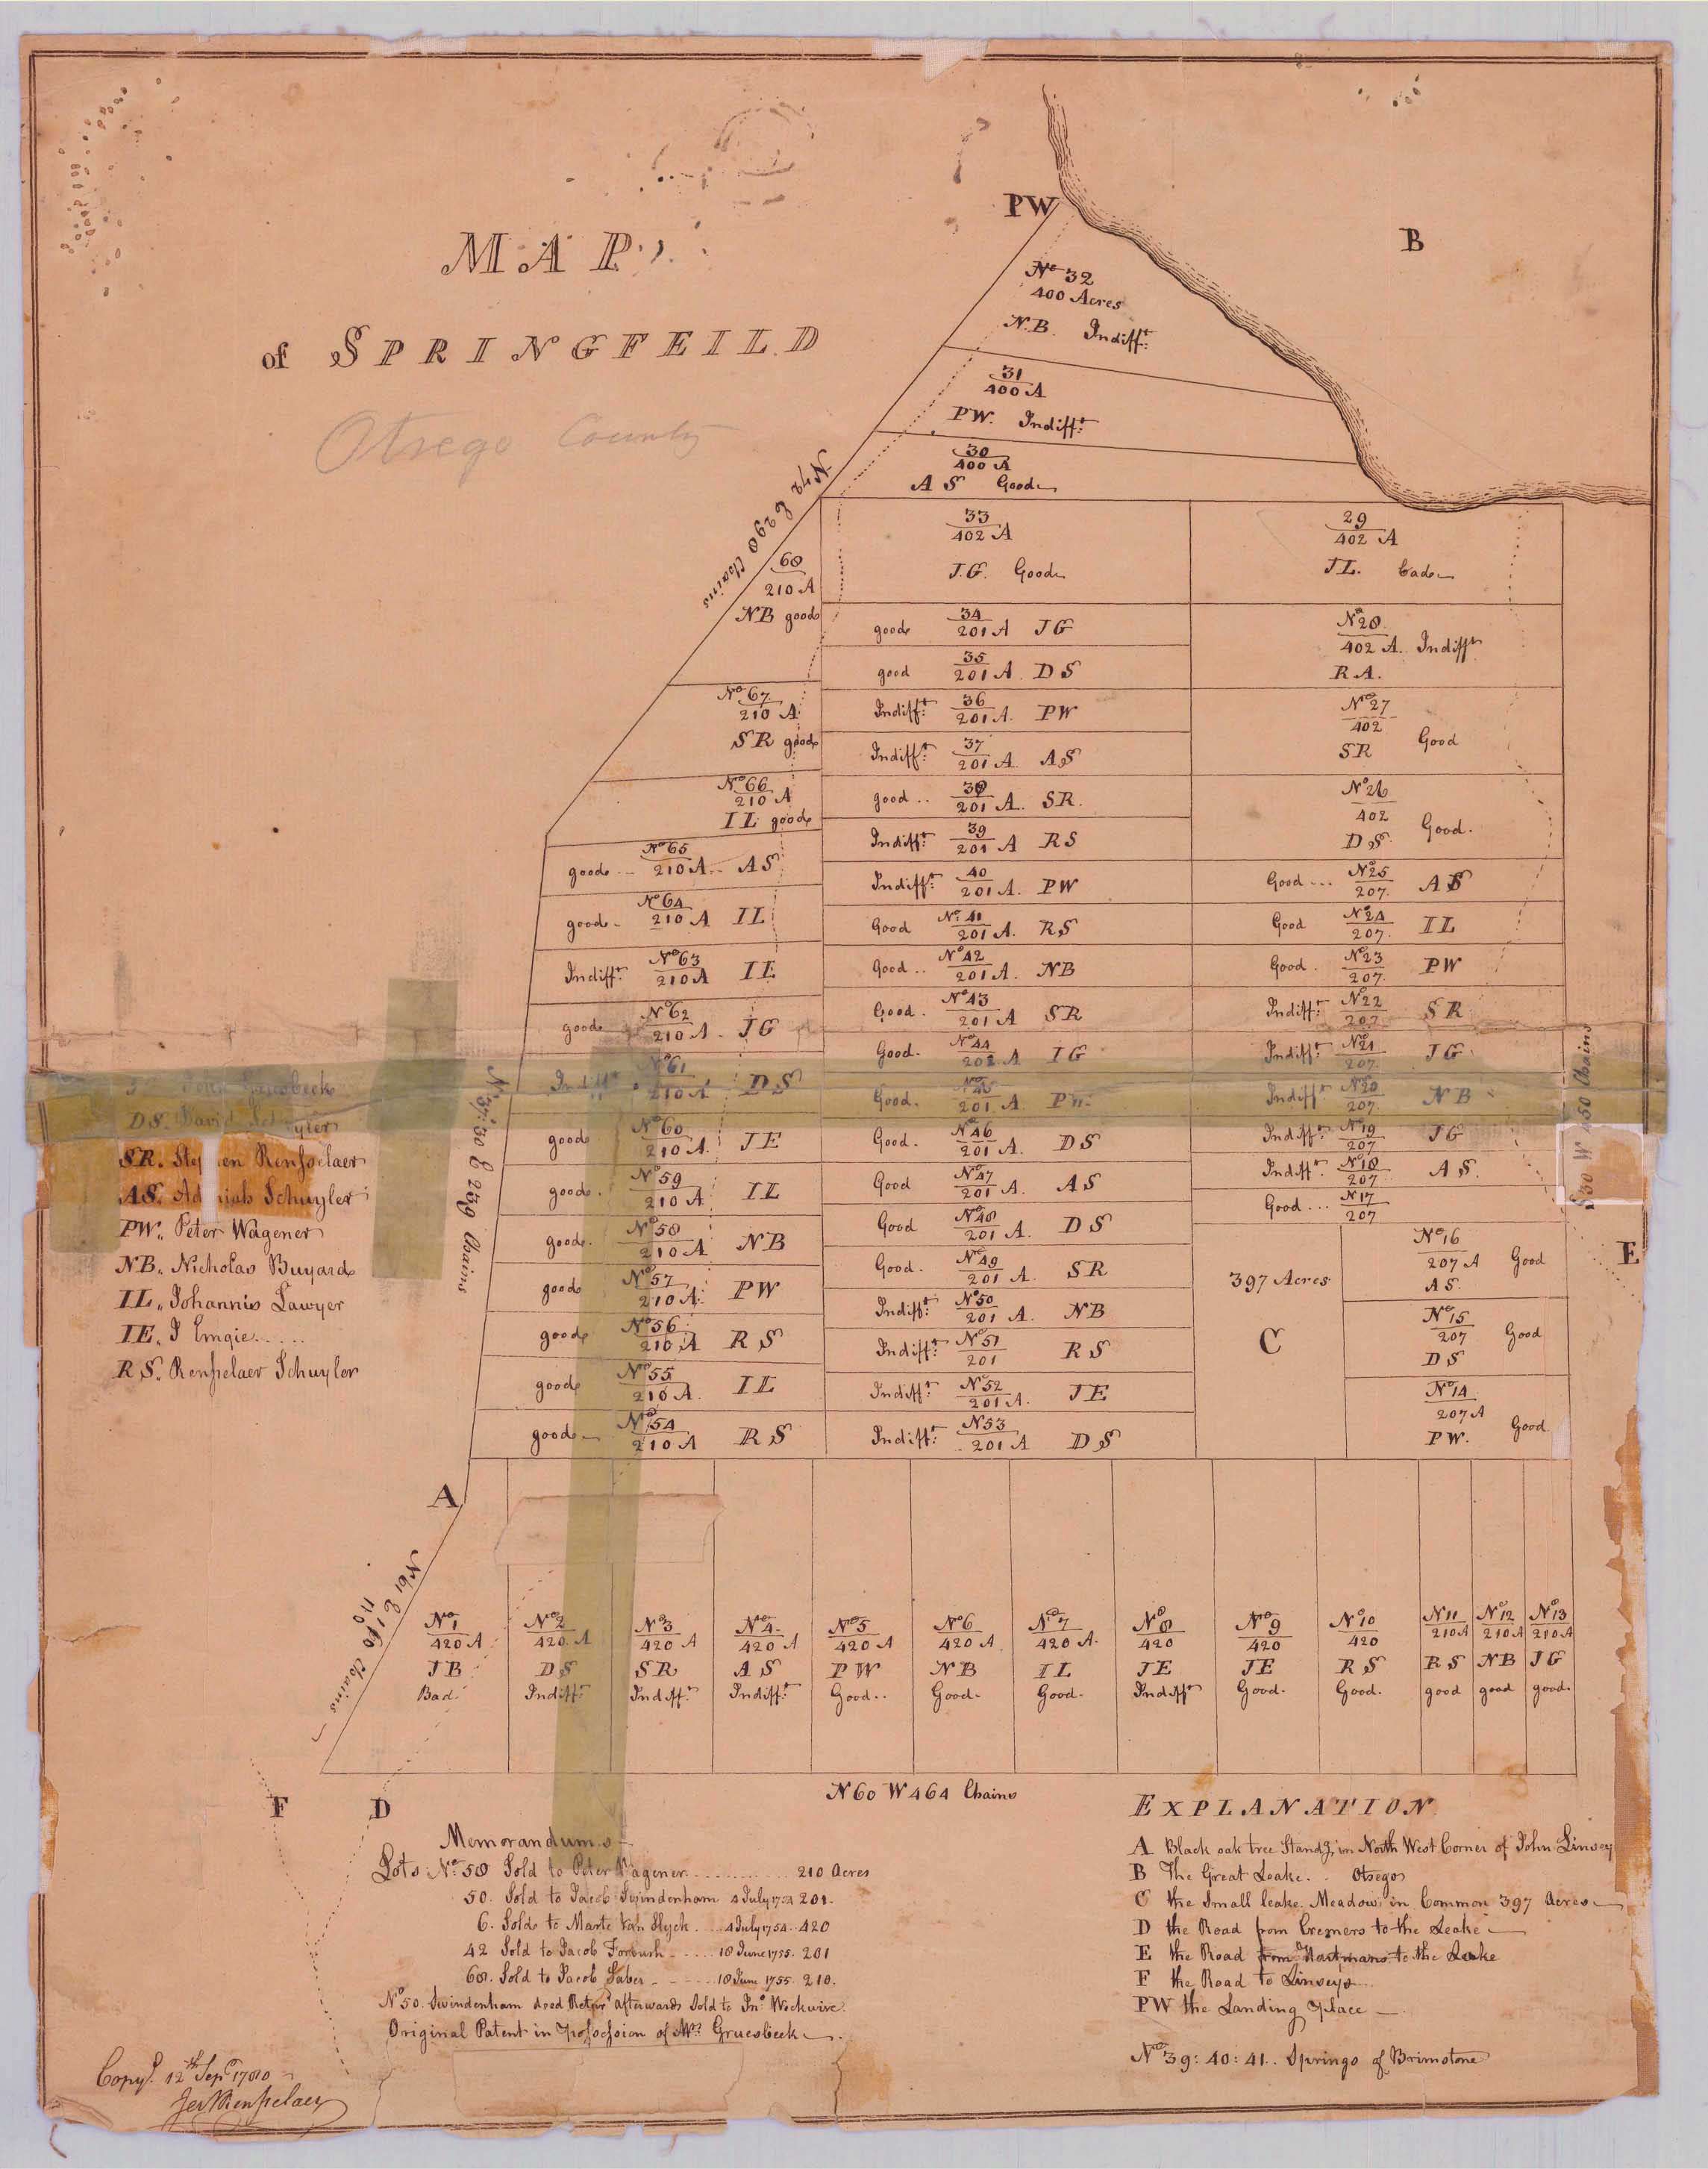 MAP
of SPRINGFEILD
Otsego County
PW
B
No 32
400 Acres
N.B. Indifft:
31
400 A
PW. Indifft:
30
400 A
AS Good
N 42 E 290 Chains
33
402 A
J.G. Good
29
402 A
JL. bad
68
210 A
NB good
34
good 201 A JG
35
good 201 A DS
No 28
402 A. Indifft
RA.
No 67
210 A
SR good
36
Indifft: 201 A. PW
37
Indifft: 201 A. AS
No 27
402
SR Good
No 66
210 A
IL good
38
good .. 201 A. SR.
39
Indifft: 201 A RS
No 26
402
DS Good.
No 65
good ... 210 A.. AS
40
Indifft: 201 A. PW
No 25
Good ... 207. AS
No 64
good - 210 A IL
No 41
Good 201 A. RS
No 24
Good 207. IL
No 63
Indifft: 210 A IE
No 42
Good .. 201 A. NB
No 23
Good . 207. PW
No 62
good 210 A. JG
No 43
Good. 201 A SR
No 22
Indifft: 207. SR
No 61
Indifft. 210 A DS
No 44
Good. 202 A IG
No 21
Indifft: 207. JG
No 45
Good. 201 A PW
No 20
Indifft 207. NB
No 60
good 210 A. JE
No 46
Good. 201 A. DS
No 19
Indifft: 207 JG
No 59
good. 210 A IL
No 47
Good 201 A. AS
No 18
Indifft: 207. AS.
No 17
Good ... 207
No 58
good. 210 A NB
No 48
Good 201 A. DS
No 57
good 210 A: PW
No 49
Good. 201 A. SR
No 56
good 210 A RS
No 50
Indifft: 201 A. NB
No 55
good 210 A. IL
No 51
Indifft: 201 RS
No 54
good 210 A RS
No 52
Indifft: 201 A. JE
No 53
Indifft: 201 A DS
397 Acres
C
No 16
207 A Good
AS.
No 15
207 Good
DS
No 14
207 A
PW. Good
E
S 30 W 450 Chains
N 37:30 E 239 Chains
DS. David Schuyler
SR. Step en Renſselaer
AS. Ad niah Schuyler
PW. Peter Wagener
NB. Nicholas Buyard
IL. Johannis Lawyer
IE. J Emgie.....
RS. Renſselaer Schuyler
A
N 61 E 110 Chains
No 1
420 A
JB
Bad.
No 2
420 A
DS
Indifft:
No 3
420 A
SR
Indifft:
No 4
420 A
AS
Indifft:
No 5
420 A
PW
Good..
No 6
420 A
NB
Good.
No 7
420 A.
IL
Good.
No 8
420
JE
Indifft
No 9
420
JE
Good.
No 10
420
RS
Good.
No 11
210 A
RS
good
No 12
210 A
NB
good
No 13
210 A
JG
good.
N 60 W 464 Chains
F
D
Memorandums
Lots No 58 Sold to Peter Wagener ............ 210 Acres
50. Sold to Jacob Swindenham 4 July 1754 201.
6. Sold to Marte Van Slyck ... 4 July 1754.. 420
42 Sold to Jacob Forbush ..... 18 June 1755. 201
68. Sold to Jacob Saber ..... 18 June 1755. 210.
No 50. Swindenham deed Retnd afterwards Sold to Jno Wickwire.
Original Patent in Poſseſsion of Mr Gruesbeek.
Copyd. 12th Sepr 1780
Jer V Renſselaer
EXPLANATION
A Black oak tree Standg in North West Corner of John Linsey
B The Great Leake. . Otsego
C the Small leake Meadow in Common 397 Acres
D the Road from Cremers to the Leake
E the Road from Hartmans to the Leake
F the Road to Linseys
PW the Landing Place
No 39: 40: 41.. Springs of Brimstone